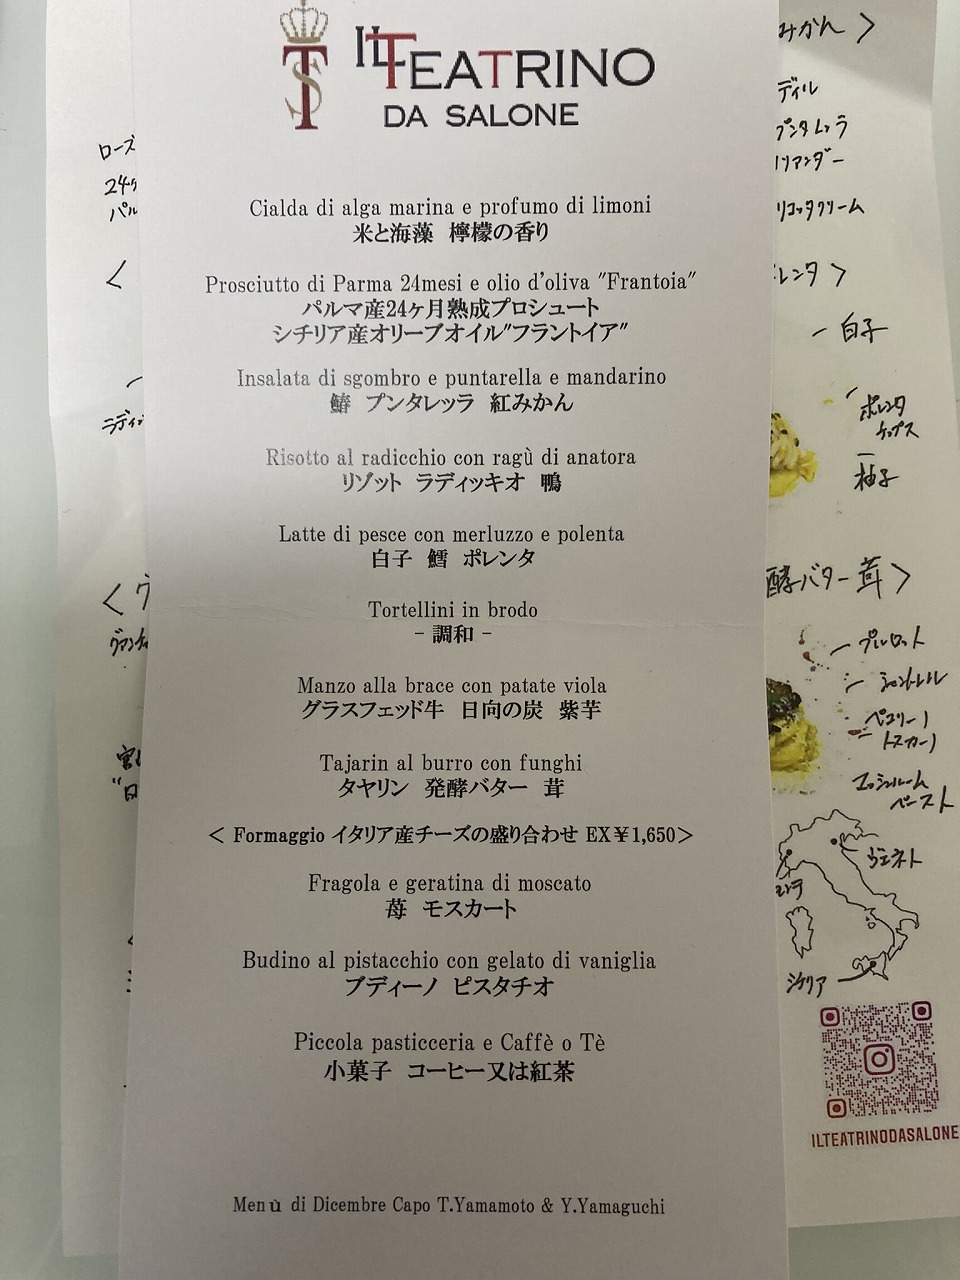 IL TEATRINO
DA SALONE
Cialda di alga marina e profumo di limoni
米と海藻 檸檬の香り
Prosciutto di Parma 24mesi e olio d'oliva "Frantoia"
パルマ産24ヶ月熟成プロシュート
シチリア産オリーブオイル"フラントイア"
Insalata di sgombro e puntarella e mandarino
鰆 プンタレッラ 紅みかん
Risotto al radicchio con ragù di anatora
リゾット ラディッキオ 鴨
Latte di pesce con merluzzo e polenta
白子 鱈 ポレンタ
Tortellini in brodo
- 調和 -
Manzo alla brace con patate viola
グラスフェッド牛 日向の炭 紫芋
Tajarin al burro con funghi
タヤリン 発酵バター 茸
< Formaggio イタリア産チーズの盛り合わせ EX¥1,650>
Fragola e geratina di moscato
苺 モスカート
Budino al pistacchio con gelato di vaniglia
ブディーノ ピスタチオ
Piccola pasticceria e Caffè o Tè
小菓子 コーヒー又は紅茶
Menù di Dicembre Capo T.Yamamoto & Y.Yamaguchi
ローズ
24ヶ
パル
みかん >
ディル
プンタレッラ
リアンダー
リコッタクリーム
レンタ >
- 白子
ポレンタ
チップス
柚子
酵バター 茸 >
プルロット
シャントレル
ペコリーノ
トスカーノ
マッシュルーム
ペースト
ヴェネト
シチリア
ILTEATRINODASALONE